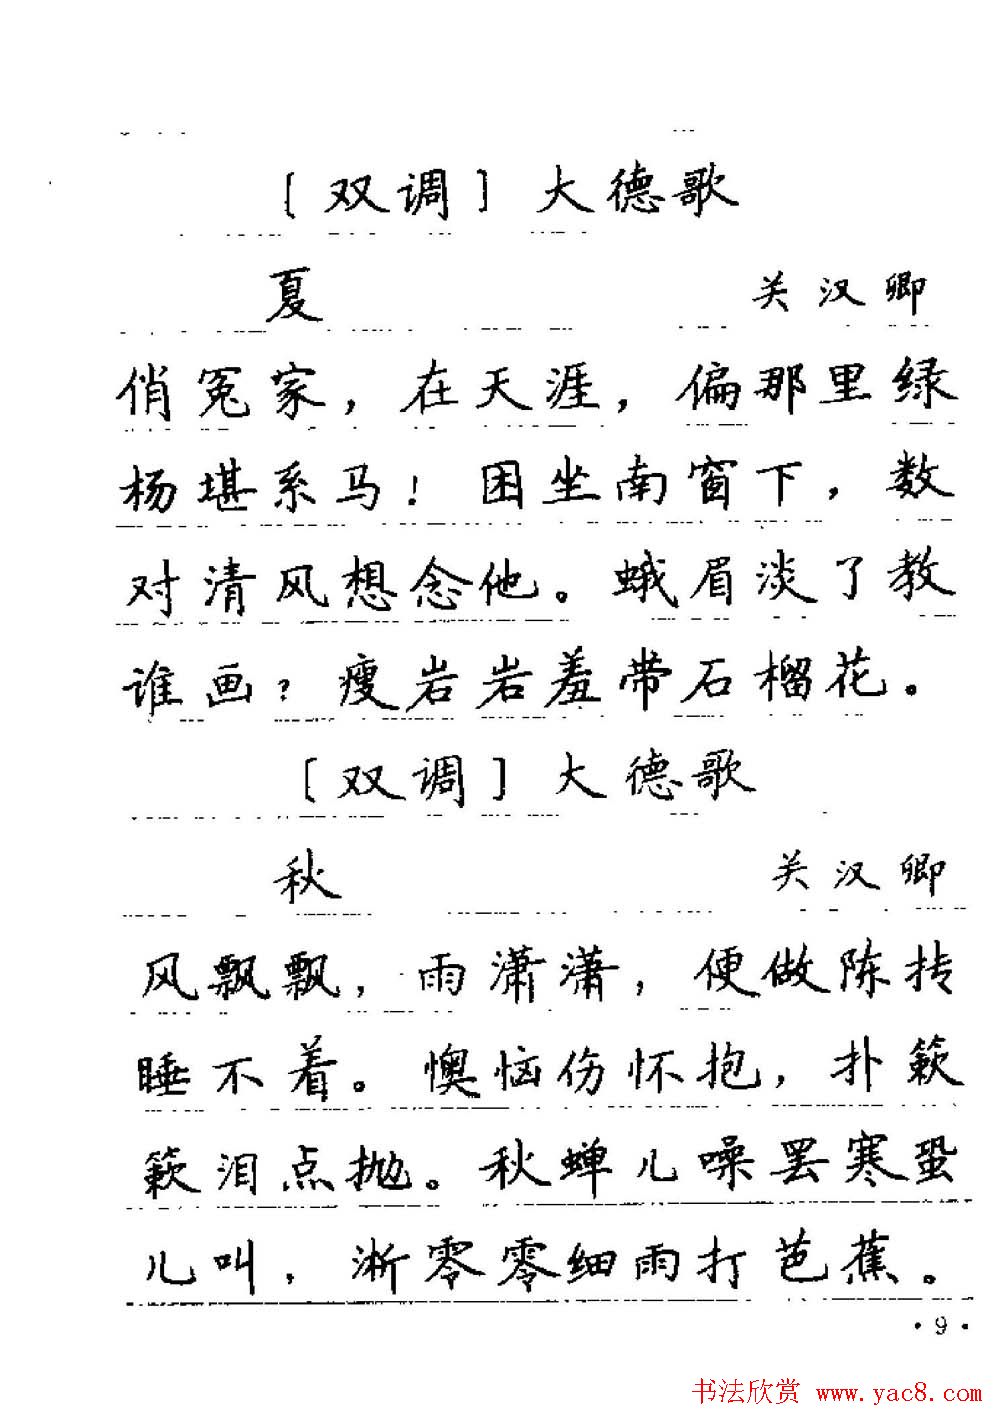 ［双调］大德歌
夏 关汉卿
俏冤家，在天涯，偏那里绿
杨堪系马！困坐南窗下，数
对清风想念他。蛾眉淡了教
谁画？瘦岩岩羞带石榴花。
［双调］大德歌
秋 关汉卿
风飘飘，雨潇潇，便做陈抟
睡不着。懊恼伤怀抱，扑簌
簌泪点抛。秋蝉儿噪罢寒蛩
儿叫，淅零零细雨打芭蕉。
·9·
书法欣赏 www.yac8.com